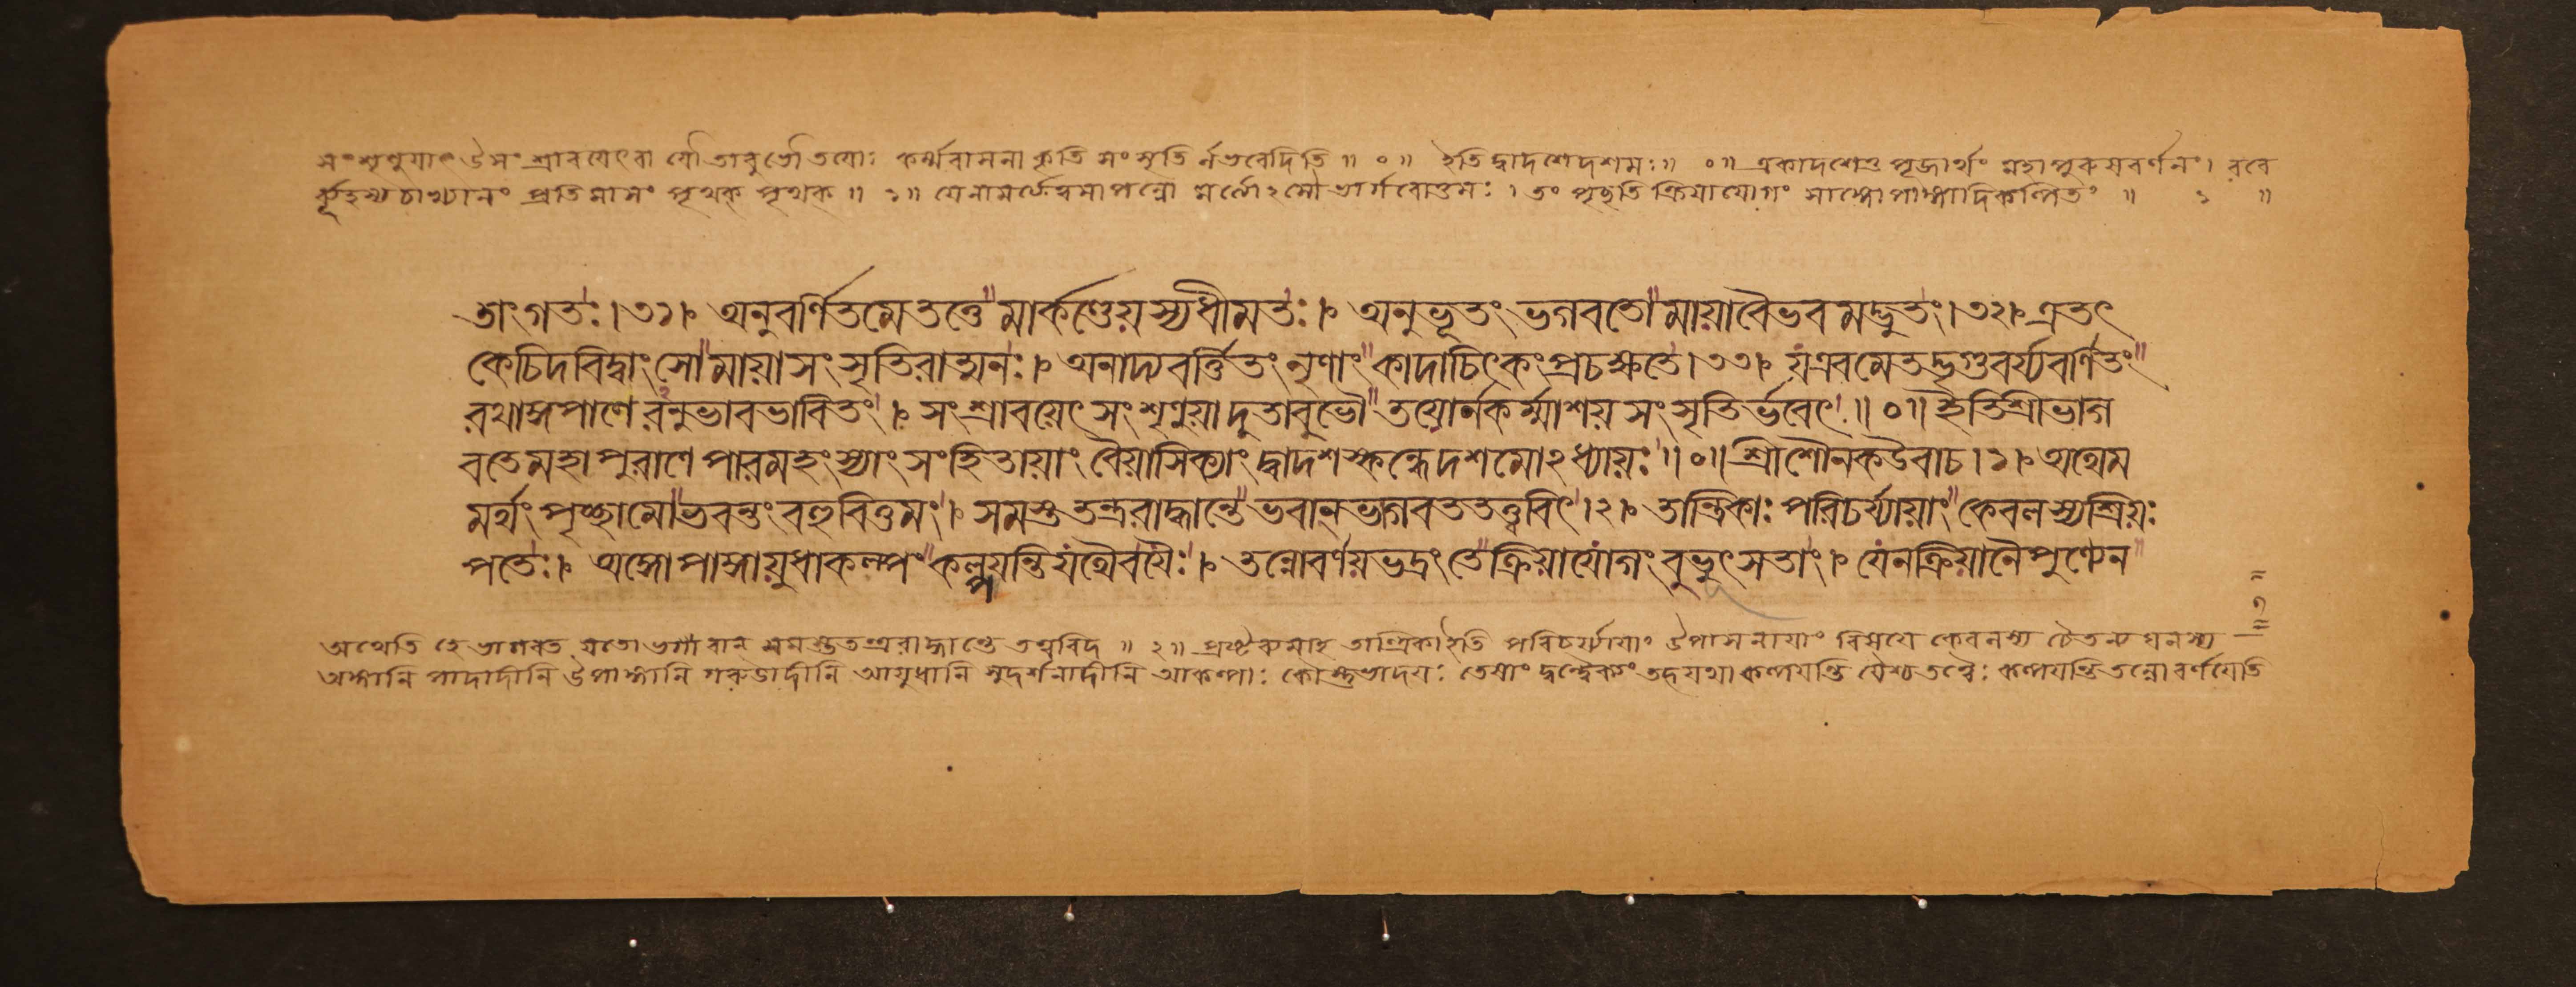 সংশৃণুয়াৎ উসংশ্রাবয়েৎবা যৌতাবুভৌতয়োঃ কর্ম্মবাসনাকৃতি সংসৃতি র্নভবেদিতি ॥ ০ ॥ ইতিদ্বাদশেদশমঃ॥ ০॥ একাদশেতু পূজার্থং মহাপুরুষবর্ণনং। রবে
র্ব্যূহস্যচাখ্যানং প্রতিমাসং পৃথক্ পৃথক্ ॥ ১॥ যেনামর্ত্যেত্বমাপন্নো মর্ত্যোঽসৌভার্গবোত্তমঃ । তং পৃচ্ছতি ক্রিয়াযোগং সাঙ্গোপাঙ্গাদিকল্পিতং ॥ ১ ॥
তাংগতঃ।৩১। অনুবর্ণিতমেতত্তে মার্কণ্ডেয়স্যধীমতঃ। অনুভূতং ভগবতো মায়াবৈভবমদ্ভুতং।৩২। এতৎ
কেচিদবিদ্বাংসো মায়াসংসৃতিরাত্মনঃ। অনাদ্যবর্ত্তিতংনৃণাং কাদাচিৎকংপ্রচক্ষতে।৩৩। যএবমেতদ্ভৃগুবর্য্যবর্ণিতং
রথাঙ্গপাণেরনুভাবভাবিতং। সংশ্রাবয়েৎসংশৃণুয়াদুতাবুভৌ তয়োর্নকর্ম্মাশয়সংসৃতির্ভবেৎ॥ ০॥ ইতিশ্রীভাগ
বতেমহাপুরাণে পারমহংস্যাং সংহিতায়াং বৈয়াসিক্যাং দ্বাদশস্কন্ধেদশমোঽধ্যায়ঃ॥০॥ শ্রীশৌনকউবাচ।১। অথেম
মর্থং পৃচ্ছামো ভবন্তংবহুবিত্তমং। সমস্ততন্ত্ররাদ্ধান্তে ভবান্ ভাগবততত্ত্ববিৎ।২। তান্ত্রিকাঃ পরিচর্য্যায়াং কেবলস্যশ্রিয়ঃ
পতেঃ। অঙ্গোপাঙ্গায়ুধাকল্পং কল্পয়ন্তিযথৈবযৈঃ। তন্নোবর্ণয়ভদ্রংতে ক্রিয়াযোগংবুভুৎসতাং। যেনক্রিয়ানৈপুণেন
অথেতি হে ভাগবত যতোভগবান্ সমস্ততন্ত্ররাদ্ধান্তে তত্ত্ববিদ্ ॥ ২॥ প্রষ্টব্যমাহ তান্ত্রিকাইতি পরিচর্য্যায়াং উপাসনায়াং বিষয়ে কেবলস্য চৈতন্যঘনস্য
অঙ্গানি পাদাদীনি উপাঙ্গানি গরুডাদীনি আয়ুধানি সুদর্শনাদীনি আকল্পাঃ কৌস্তুভাদয়ঃ তেষাং দ্বন্দ্বৈক্যং তদ্যথাকল্পয়ন্তি যৈশ্চতত্ত্বৈঃ কল্পয়ন্তিতন্নোবর্ণয়েতি